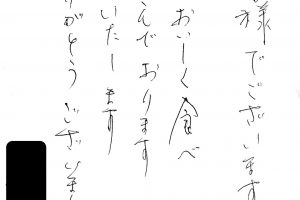 様でございます
おいしく食べ
えでおります
いたします
りがとうございまし